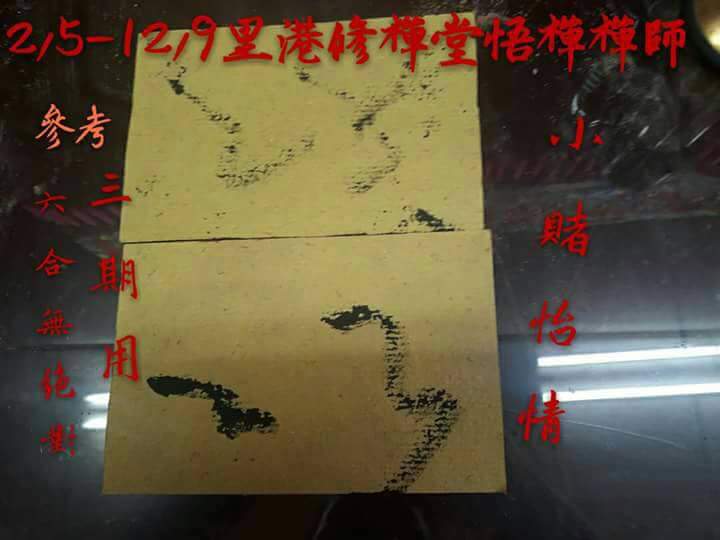 2,5-12,9里港修禪堂悟禪禪師
參考三期用
六合無絕對
小賭怡情